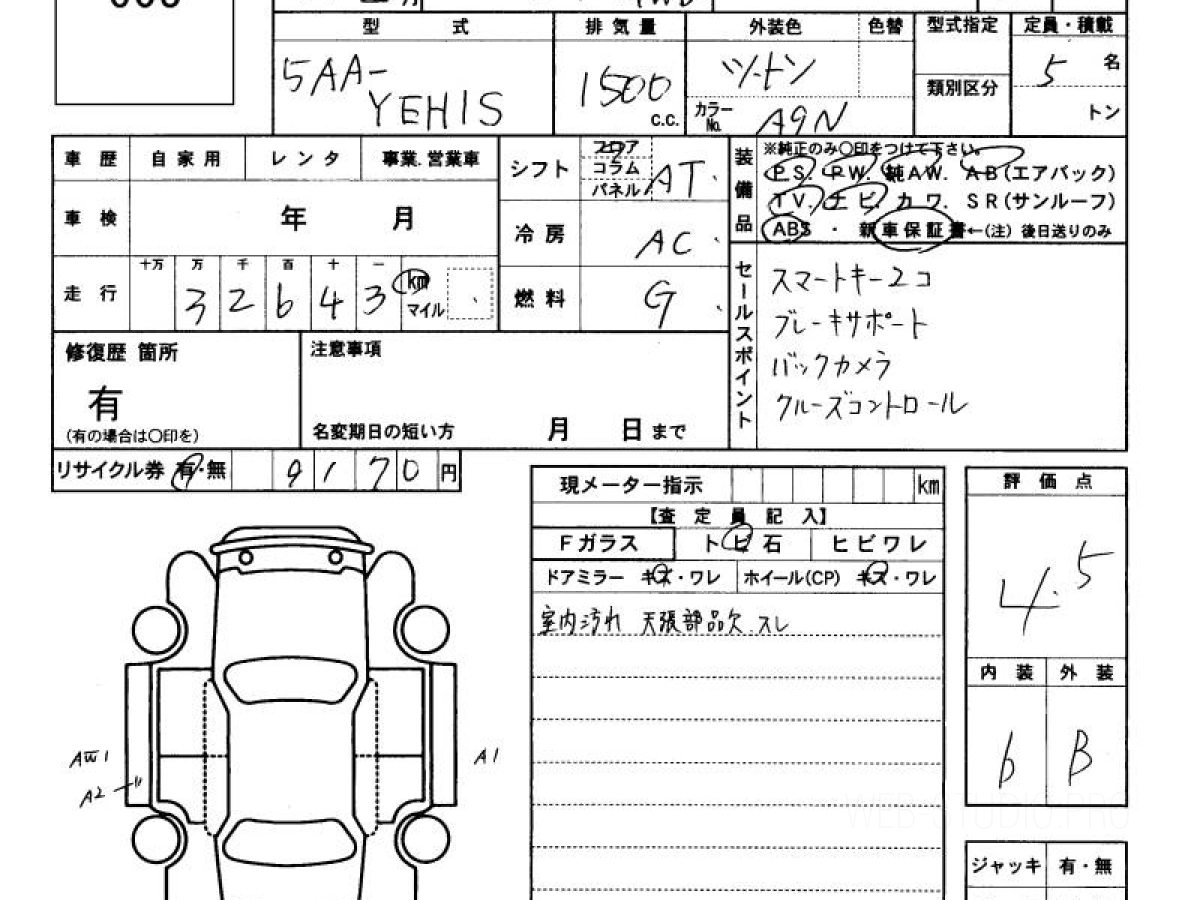 型 式 排 気 量 外装色 色替 型式指定 定員・積載
5AA-
YEHIS 1500 c.c. ツートン 5 名
類別区分
カラーNo. A9N トン
車 歴 自 家 用 レ ン タ 事業.営業車
シフト フロア コラム パネル AT
装備品 ※純正のみ〇印をつけて下さい。
PS. PW. 純AW. AB(エアバック)
TV. ナビ. カワ. SR(サンルーフ)
ABS ・ 新車保証書←(注) 後日送りのみ
車 検 年 月
冷 房 AC
走 行 十万 万 千 百 十 一
3 2 6 4 3 km マイル
燃 料 G
セールスポイント
スマートキー2コ
ブレーキサポート
バックカメラ
クルーズコントロール
修復歴 箇所
有
(有の場合は〇印を)
注意事項
名変期日の短い方 月 日 まで
リサイクル券 有・無 9 1 7 0 円
現メーター指示 km
【査 定 員 記 入】
Fガラス ト ビ 石 ヒ ビ ワ レ
ドアミラー キズ・ワレ ホイール(CP) キズ・ワレ
室内汚れ 天張部品欠.スレ
評 価 点
4.5
内 装 外 装
b B
AW1
A2
A1
ジャッキ 有・無
WEB-STUDIO.PRO